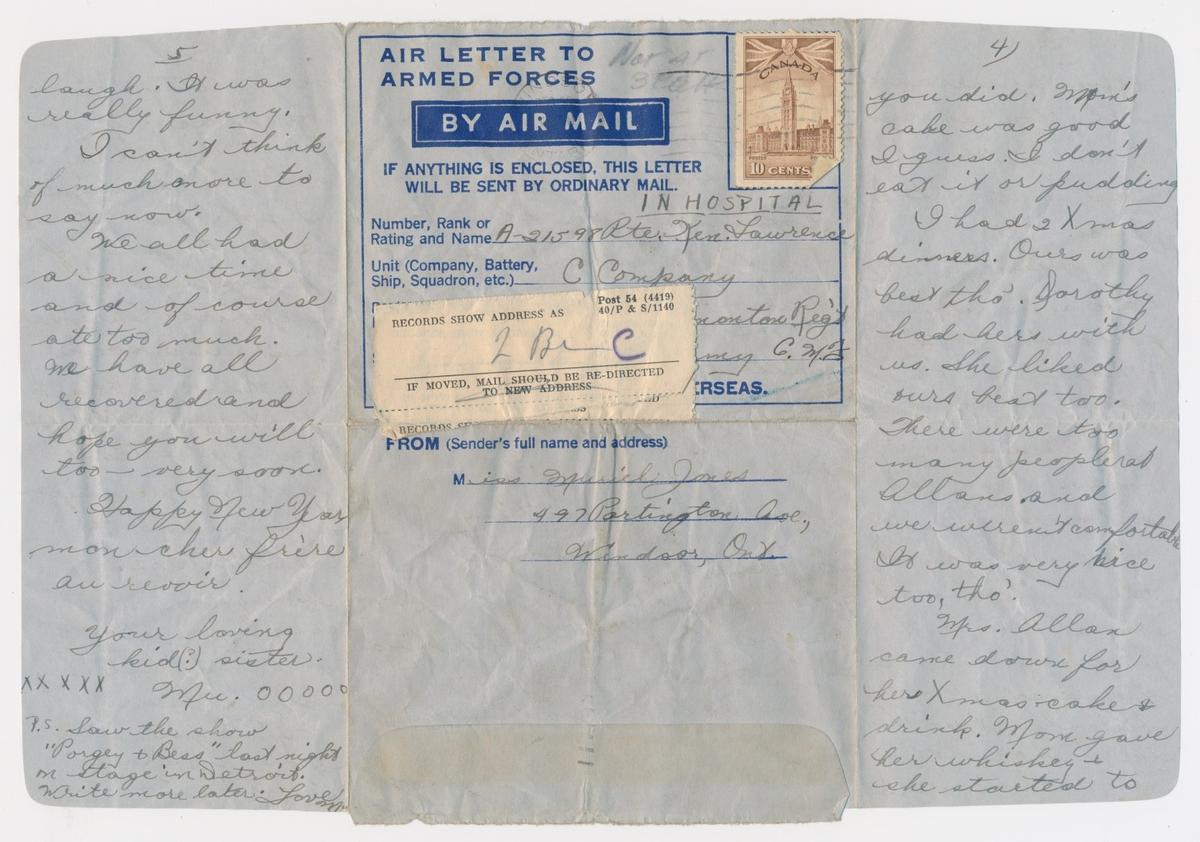 5
laugh. It was
really funny.
I can't think
of much more to
say now.
We all had
a nice time
and of course
ate too much.
We have all
recovered and
hope you will
too - very soon.
Happy New Year
mon cher frère
au revoir.
Your loving
kid(?) sister.
XX XXX Mu. OOOOO
P.S. Saw the show
"Porgey + Bess" last night
on stage in Detroit.
Write more later. Love
AIR LETTER TO
ARMED FORCES
BY AIR MAIL
IF ANYTHING IS ENCLOSED, THIS LETTER
WILL BE SENT BY ORDINARY MAIL.
CANADA
POSTES
10 CENTS
IN HOSPITAL
Number, Rank or
Rating and Name A-21598 Pte. Ken. Lawrence
Unit (Company, Battery,
Ship, Squadron, etc.) C Company
monton Reg't
my C.M.F
ERSEAS.
Post 54 (4419)
40/P & S/1140
RECORDS SHOW ADDRESS AS
C
IF MOVED, MAIL SHOULD BE RE-DIRECTED
TO NEW ADDRESS
FROM (Sender's full name and address)
Miss Muriel Jones
497 Partington Ave.,
Windsor, Ont.
4)
you did. Mom's
cake was good
I guess. I don't
eat it or pudding
I had 2 Xmas
dinners. Ours was
best tho'. Dorothy
had hers with
us. She liked
ours best too.
There were too
many people at
Allans and
we weren't comfortable
It was very nice
too, tho'.
Mrs. Allan
came down for
her Xmas cake &
drink. Mom gave
her whiskey +
she started to